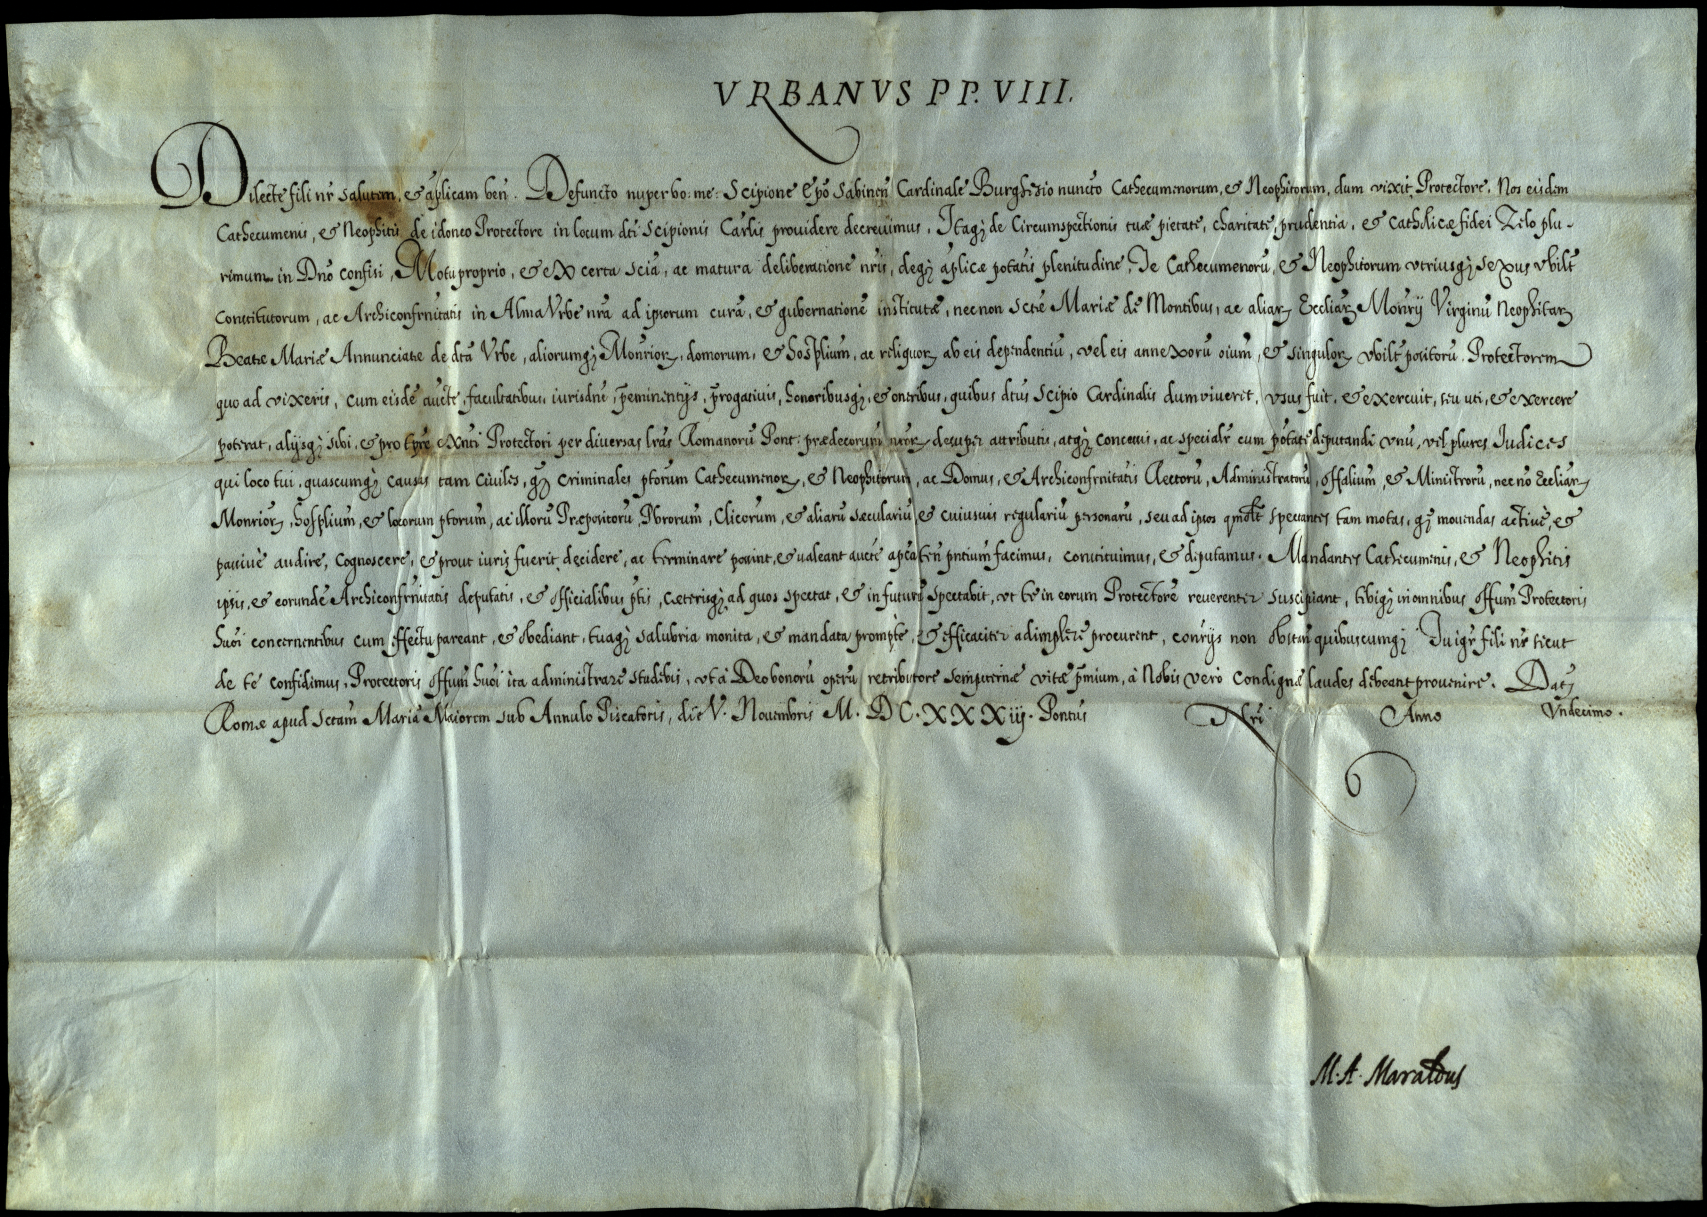 VRBANVS PP. VIII.
Dilecte fili nr̃ salutem, & aplicam ben̄. Defuncto nuper bo: me: Scipione Ep̃o Sabinen̄ Cardinale Burghesio nuncto Cathecumenorum, & Neophitorum, dum vixit, Protectore, Nos eisdem
Cathecumenis, & Neophitis de idoneo Protectore in locum dc̃ti Scipionis Car̃lis prouidere decreuimus. Itaq; de Circumspectionis tuæ pietate, charitate, prudentia, & catholicæ fidei Zelo plu-
rimum in Dño confisi, Motu proprio, & ex certa scia͂, ac matura deliberatione nr̃is, deq; aplicæ po͂tatis plenitudine, Te Cathecumenoru͂, & Neophitorum vtriusq; sexus vbilt
Constitutorum, ac Archiconfrnitatis in Alma Vrbe nr̃a ad ipsorum cura͂, & gubernatione͂ institutæ, necnon Sctæ Mariæ de Montibus, ac aliar Eccliar Monrij Virginu͂ Neophitar
Beatæ Mariæ Annunciatæ de dc̃ta Vrbe, aliorumq; Monrior, domorum, & hosplium, ac reliquor ab eis dependentiu͂, vel eis annexoru͂ oium, & singulor vbilt positoru͂ Protectorem
quo ad vixeris, cum eisdẽ auctẽ, facultatibus, iurisdne, p͂eminentijs, p͂rogatiuis, honoribusq; & oneribus, quibus dc̃tus Scipio Cardinalis dum viueret, vsus fuit, & exercuit, seu uti, & exercere
poterat, alijsq; sibi, & pro tp̃re exñti Protectori per diuersas lr̃as Romanoru͂ Pont: prædecessoru͂ nr̃or desuper attributis, atq; concessis, ac specialr̃ cum po͂tate deputandi vnu͂, vel plures Iudices
qui loco tui, quascumq; causas tam ciuiles, q͂; criminales p͂torum Cathecumenor, & Neophitorum, ac Domus, & Archiconfrnitatis Rectoru͂, Administratoru͂, offialium, & Ministroru͂, nec no͂ Eccliar
Monrior, hosplium, & locorum p͂torum, ac illoru͂ Præpositoru͂, Pbrorum, Clicorum, & aliaru͂ sæculariu͂ & cuiusuis regulariu͂ personaru͂, seu ad ipsos qmo͂lt spectantes tam motas, q͂; mouendas actiuè, &
passiuè audire, cognoscere, & prout iuris fuerit, decidere, ac terminare possint, & valeant auctẽ ap͂ca ten̄ pñtium facimus, constituimus, & deputamus. Mandantes Cathecumenis, & Neophitis
ipsis, & eorunde͂ Archiconfrnitatis deputatis, & officialibus p͂tis, cæterisq; ad quos spectat, & in futuru͂ spectabit, vt te in eorum Protectore͂ reuerenter suscipiant, tibiq; in omnibus offum Protectoris
huõi concernentibus cum effectu pareant, & obediant, tuaq; salubria monita, & mandata promptè, & efficaciter adimplere procurent, conrijs non obstan̄ quibuscumq; Tu igr̃ fili nr̃ sicut
de te confidimus, Protectoris offum huõi ita administrare studebis, vt à Deo bonoru͂ operu͂ retributore sempiternæ vitæ p͂mium, à Nobis verò condignæ laudes debeant prouenire. Dat;
Romæ apud Sctam Maria͂ Maiorem sub Annulo Piscatoris, die V. Nouembris M. DC. XXXiij. Pontus Nr̃i Anno Vndecimo.
M. A. Maraldus